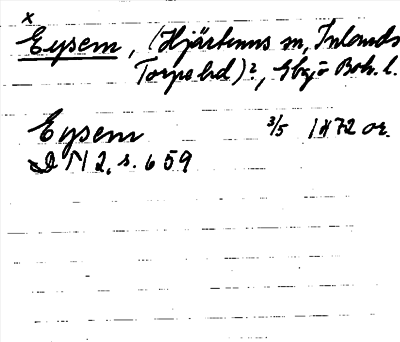 x
Eysem, (Hjärtums sn, Inlands
Torpe hd)?, Gbg o Boh. l.
Eysem 3/5 1472 or.
DN 2, s. 659